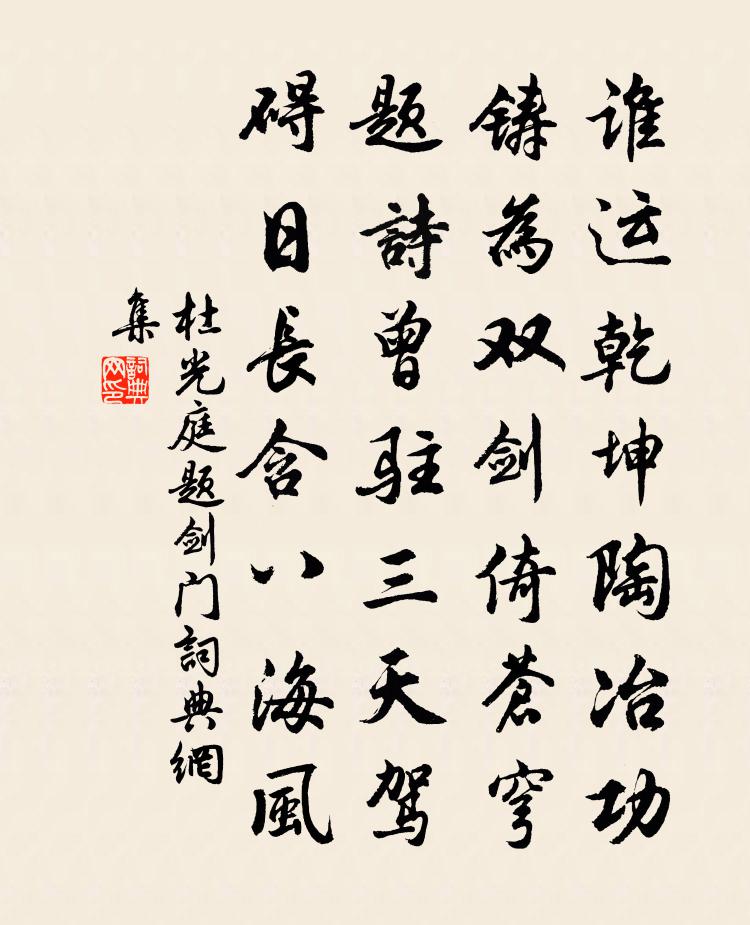 谁运乾坤陶冶功
铸為双剑倚蒼穹
题詩曾驻三天驾
碍日長含八海風
杜光庭题剑门詞典網
集
詞典
网印